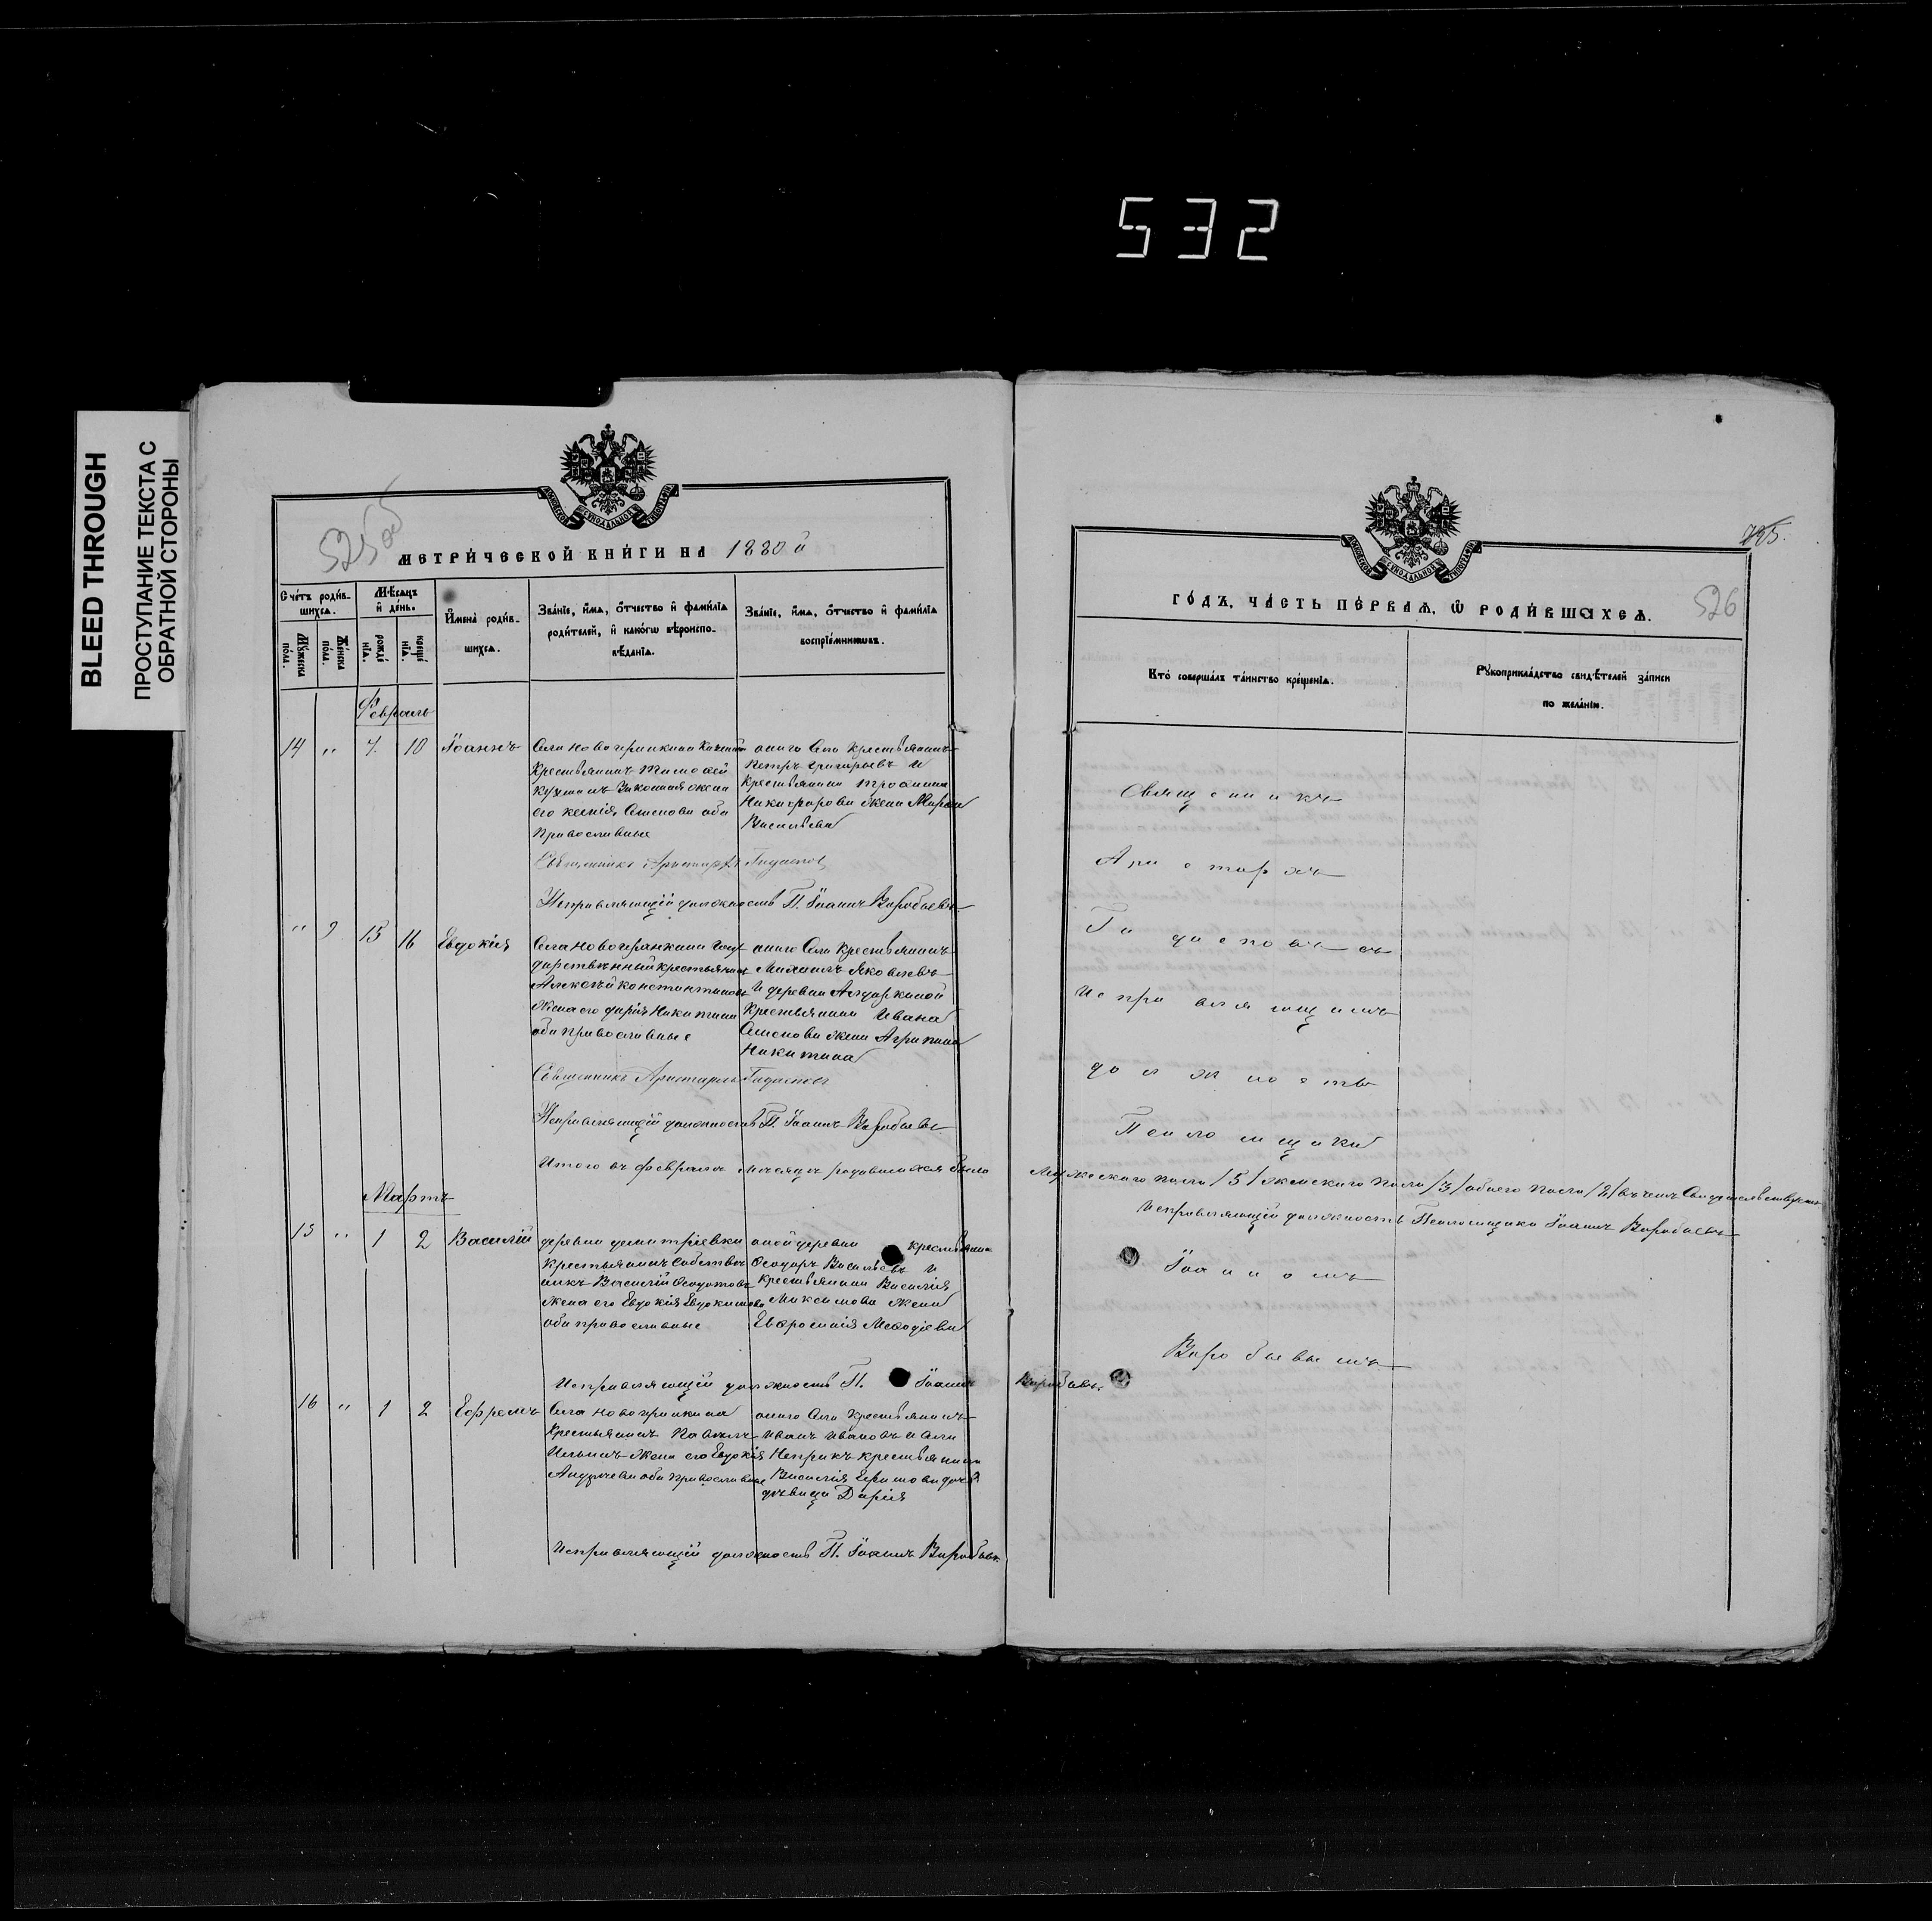 532
BLEED THROUGH
ПРОСТУПАНИЕ ТЕКСТА С
ОБРАТНОЙ СТОРОНЫ
525 об
МЕТРИЧЕСКОЙ КНИГИ НА 1880 й
Счетъ родив-
шихся.
Мужеска пола.
Женска пола.
Мѣсяцъ и день.
рожденія.
крещенія.
Имена родив-
шихся.
Званіе, имя, отчество и фамилія
родителей, и какогѡ вѣроиспо-
вѣданія.
Званіе, имя, отчество и фамилія
воспріемникѡвъ.
Февраль
14 " 7. 10 Іоаннъ
Села Новогрянкина
Крестьянинъ Тимоѳей
Кузминъ Законная жена
его Ксенія Семенова оба
Православные
онаго Села Крестьянинъ
Петръ Григорьевъ и
Крестьянина Троѳима
Никифорова жена Марѳа
Васильева
Священникъ Аристархъ Гидасповъ
Исправляющій должность П. Іоаннъ Воробьевъ
" 9 15 16 Евдокія
Села Новогрянкина Госу-
дарственный крестьянинъ
Алексѣй Константиновъ
Жена его Дарія Никитина
оба православные
онаго Села Крестьянинъ
Михаилъ Яковлевъ
И деревни Алдаркиной
Крестьянина Ивана
Семенова жена Агрипина
Никитина
Священникъ Аристархъ Гидасповъ
Исправляющій должность П. Іоаннъ Воробьевъ
Итого въ Февралѣ Месяцѣ родившихся было
Мартъ
15 " 1 2 Василій
деревни Димитріевки
Крестьянинъ Собствен
никъ Василій Ѳедотовъ
Жена его Евдокія Евдокимова
оба православные
оной деревни крестьянинъ
Ѳеодоръ Васильевъ и
крестьянина Василія
Максимова жена
Евѳросинія Меѳодіева
Исправляющій должность П. Іоаннъ Воробьевъ.
16 " 1 2 Ефремъ
Села Новогрянкина
Крестьянинъ Павелъ
Ильинъ жена его Евдокія
Андреева оба православные
онаго Села Крестьянинъ
Иванъ Ивановъ и Села
крестьянина
Василія Ефимова дочь
дѣвица Дарія
Исправляющій должность П. Іоаннъ Воробьевъ.
526
ГОДЪ, ЧАСТЬ ПЕРВАЯ, Ѡ РОДИВШИХСЯ.
Кто совершалъ таинство крещенія.
Рукоприкладство свидѣтелей записи
по желанію.
Священникъ
Аристархъ
Гидасповъ съ
Исправляющимъ
должность
Псаломщика
Мужескаго пола /5/ женскаго пола /3/ обоего пола
Исправляющій должность Псаломщика Іоаннъ Воробьевъ
Іоанномъ
Воробьевымъ